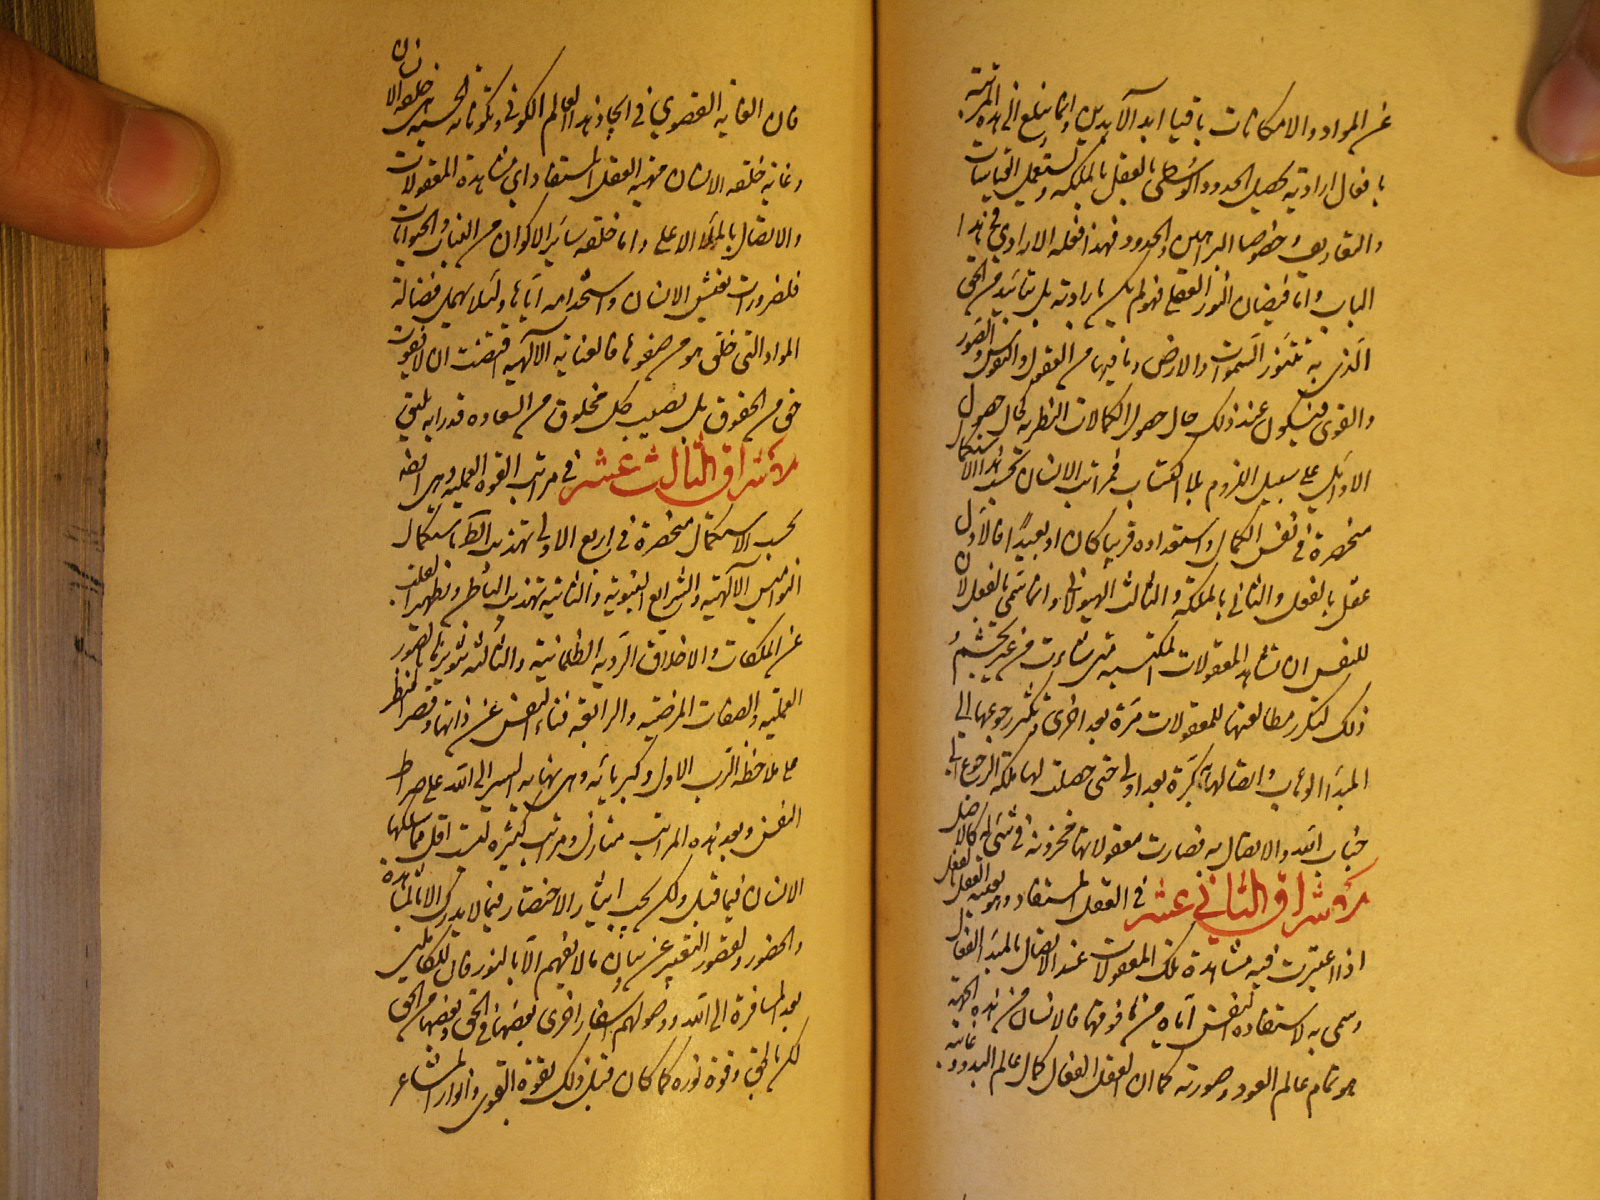 عن المواد والامكانات باقيا ابد الآبدين وانما يبلغ الى هذه المرتبة
بافعال ارادية كتحصيل الحدود الوسطى بالعقل بالملكة وتستعمل القياسات
والتعاريف وخصوصا البراهين والحدود فهذا فعله الارادي في هذا
الباب واما فيضان النور العقلي فهو لم يكن بارادته بل بتائيد من الحق
الذي به تتنور السموات والارض وما فيها من العقول والنفوس والصور
والقوى فيكون عند ذلك حال حصول الكمالات النظرية كحال حصول
الاوائل على سبيل اللزوم بلا اكتساب فمراتب الانسان بحسب هذا الاستكمال
منحصرة في نفس الكمال واستعداده قريبا كان او بعيدًا فالاول
عقل بالفعل والثاني بالملكة والثالث الهيولاني وانما سمي بالفعل لان
للنفس ان تشاهد المعقولات المكتسبة متى شاءت من غير تجشم و
ذلك لتكرر مطالعتها للمعقولات مرة بعد اخرى وتكثر رجوعها الى
المبدأ الوهاب واتصالها به كرة بعد اولى حتى حصلت لها ملكة الرجوع الى
جناب الله والاتصال به فصارت معقولاتها مخزونة في شئ له كالاصل
الاشراق الثاني عشر في العقل المستفاد وهو بعينه العقل بالفعل
اذا اعتبرت فيه مشاهدة تلك المعقولات عند الاتصال بالمبدء الفعال
وسمى به لاستفادة النفس اياه من ما فوقها فالانسان من هذه الجهة
هو تمام عالم العود وصورته كما ان العقل الفعال كمال عالم البدو وغايته
فان الغاية القصوى في ايجاد هذا العالم الكوني ومكوناته الحسية هي خلقة الانسان
وغاية خلقة الانسان مرتبة العقل المستفاد اي مشاهدة المعقولات
والاتصال بالملاء الاعلى واما خلقة سائر الاكوان من النبات والحيوانات
فلضرورات تعيش الانسان واستخدامه اياها ولئلا يهمل فضالة
المواد التي خلق هو من صفوها فالعناية الآلهية اقتضت ان لا يفوت
حق من الحقوق بل يصيب كل مخلوق من السعادة قدرا به يليق
الاشراق الثالث عشر في مراتب القوة العملية وهي ايضا
بحسب الاستكمال منحصرة في اربع الاولى تهذيب الظاهر باستعمال
النواميس الآلهية والشرايع النبوية والثانية تهذيب الباطن وتطهير القلب
عن الملكات والاخلاق الردية الظلمانية والثالثة تنويرها بالصور
العلمية والصفات المرضية والرابعة فناء النفس عن ذاتها وقصر النظر
على ملاحظة الرب الاول وكبريائه وهي نهاية السير الى الله على صراط
النفس وبعد هذه المراتب منازل ومراتب كثيرة ليست اقل مما سلكها
الانسان فيما قبل ولكن يجب ايثار الاختصار فيما لا يدرك الا بالمشاهدة
والحضور لقصور التعبير عن بيان ما لا يفهم الا بالنور فان للكاملين
بعد المسافرة الى الله ووصولهم اسفار اخرى بعضها في الحق وبعضها من الحق
لكن بالحق وقوة نوره كما كان قبل ذلك بقوة القوى وانوار المشاعر